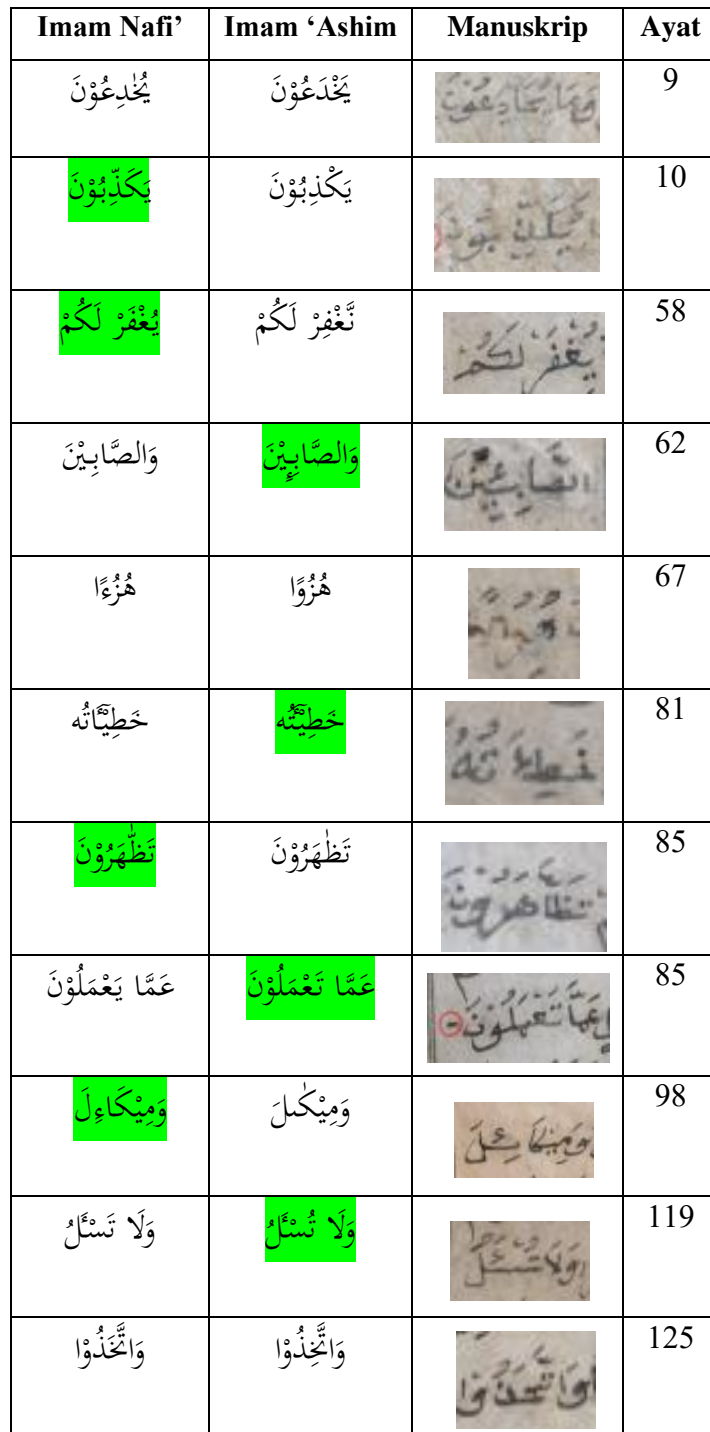 Imam Nafi’ Imam ‘Ashim Manuskrip Ayat
يُخٰدِعُوْنَ يَخْدَعُوْنَ وَمَا يُخَادِعُوْنَ 9
يُكَذِّبُوْنَ يَكْذِبُوْنَ 10
يُغْفَرْ لَكُمْ نَّغْفِرْ لَكُمْ يُغْفَرْ لَكُمْ 58
وَالصَّابِيْنَ وَالصَّابِـِٕيْنَ الصَّابِئِيْنَ 62
هُزُءًا هُزُوًا 67
خَطِيْـَٔاتُه خَطِيْـَٔتُه 81
تَظّٰهَرُوْنَ تَظٰهَرُوْنَ تَظَاهَرُوْنَ 85
عَمَّا يَعْمَلُوْنَ عَمَّا تَعْمَلُوْنَ عَمَّا تَعْمَلُوْنَ 85
وَمِيْكَاءِلَ وَمِيْكٰىلَ وَمِيْكَائِلَ 98
وَلَا تَسْـَٔلُ وَلَا تُسْـَٔلُ وَلَا تُسْـَٔلُ 119
وَاتَّخَذُوْا وَاتَّخِذُوْا وَاتَّخَذُوا 125